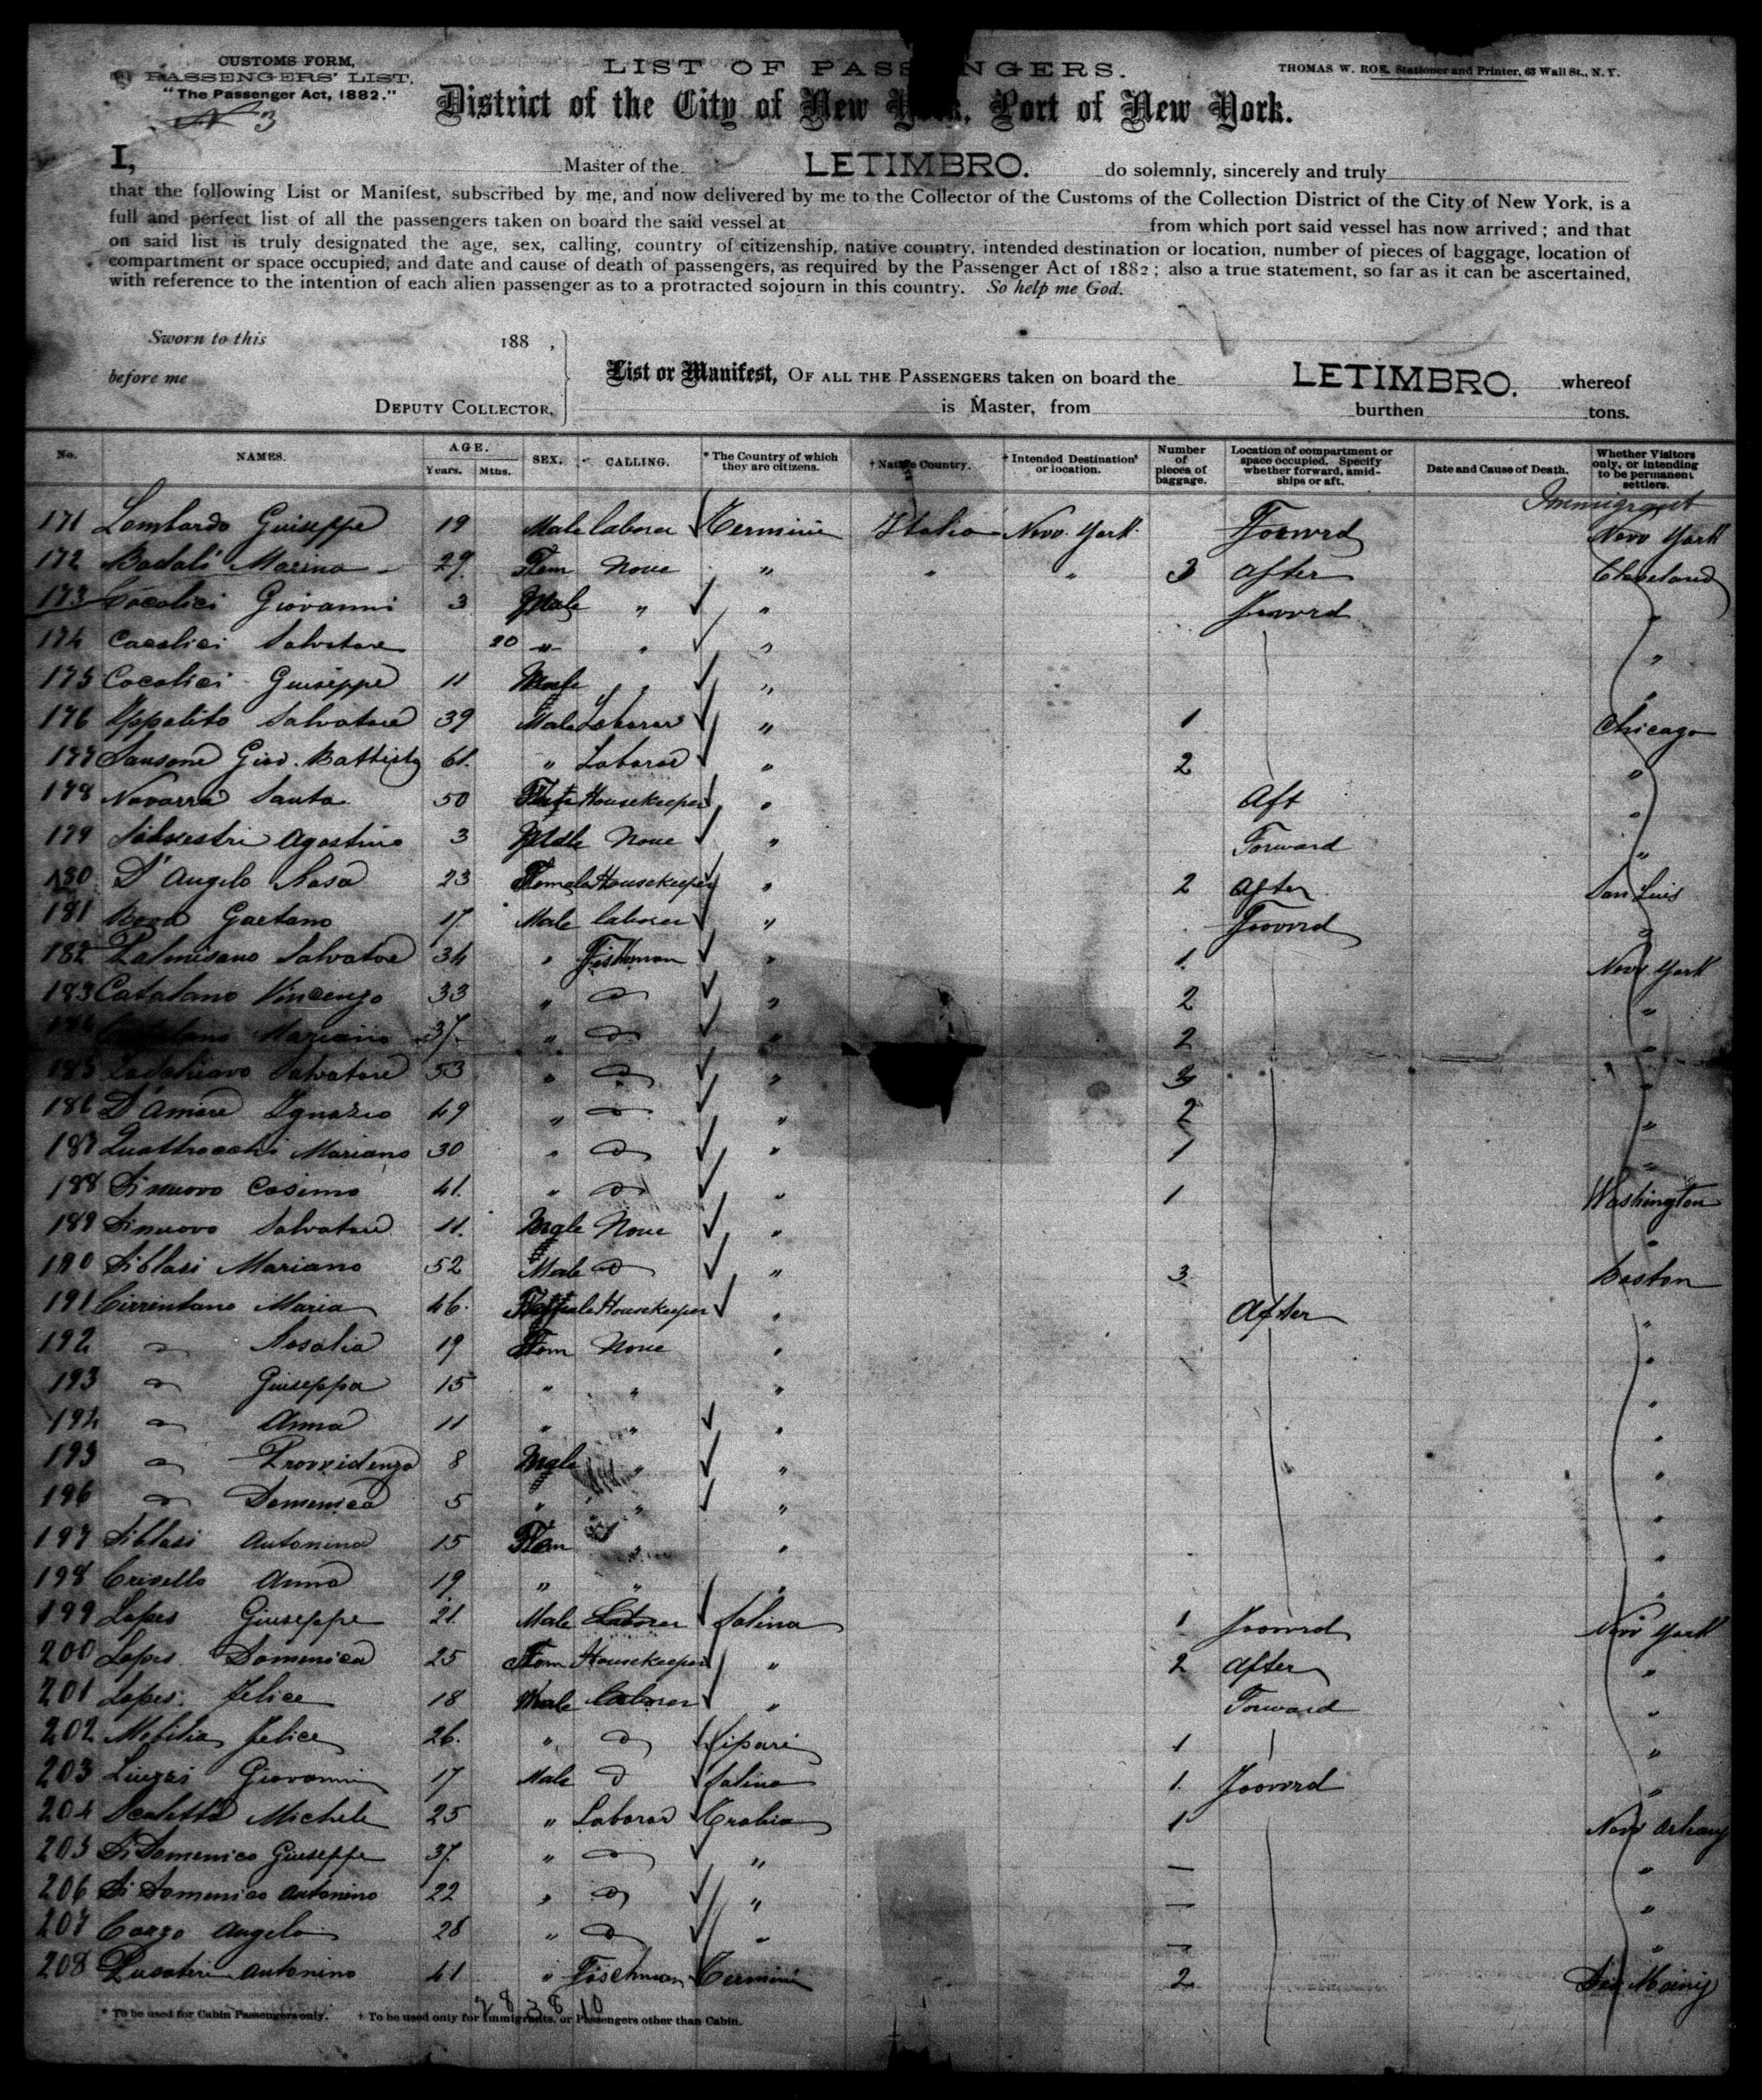 CUSTOMS FORM,
PASSENGERS' LIST.
"The Passenger Act, 1882."
N 3
LIST OF PASSENGERS.
THOMAS W. ROE, Stationer and Printer, 63 Wall St., N. Y.
District of the City of New York, Port of New York.
I, Master of the LETIMBRO. do solemnly, sincerely and truly
that the following List or Manifest, subscribed by me, and now delivered by me to the Collector of the Customs of the Collection District of the City of New York, is a
full and perfect list of all the passengers taken on board the said vessel at from which port said vessel has now arrived; and that
on said list is truly designated the age, sex, calling, country of citizenship, native country, intended destination or location, number of pieces of baggage, location of
compartment or space occupied, and date and cause of death of passengers, as required by the Passenger Act of 1882; also a true statement, so far as it can be ascertained,
with reference to the intention of each alien passenger as to a protracted sojourn in this country. So help me God.
Sworn to this 188 ,
before me
DEPUTY COLLECTOR,
List or Manifest, OF ALL THE PASSENGERS taken on board the LETIMBRO. whereof
is Master, from burthen tons.
No. NAMES. AGE. Years. Mths. SEX. CALLING. * The Country of which they are citizens. † Native Country. † Intended Destination or location. Number of pieces of baggage. Location of compartment or space occupied. Specify whether forward, amidships or aft. Date and Cause of Death. Whether Visitors only, or intending to be permanent settlers.
Immigrant
171 Lombardo Guiseppe 19 Male laborer Termini Italia New York Forwrd New York
172 Badali Marina 29 Fem None " " " 3 After Cleveland
173 Cacalici Giovanni 3 Male " " Forwrd
174 Cacalici Salvatore 20 " " " "
175 Cacalici Guiseppe 11 Male " " "
176 Ippolito Salvatore 39 Male Laborer " 1 Chicago
177 Sansone Giov. Battista 61 " Laborer " 2 "
178 Navarra Santa 50 Housekeeper " Aft "
179 Silvestri Agostino 3 Male None " Forward "
180 D'Angelo Rosa 23 Female Housekeeper " 2 After San Luis
181 Bova Gaetano 17 Male laborer " Forwrd "
182 Palmisano Salvatore 34 " Fishman " 1 New York
183 Catalano Vincenzo 33 " " 2 "
184 Catalano Mariano 37 " " 2 "
185 Salvatore 53 " " "
186 D'Amore Ignazio 49 " " 2 "
187 Quattrocchi Mariano 30 " " 1 "
188 Dinuovo Cosimo 41 " " 1 Washington
189 Dinuovo Salvatore 11 Male None " "
190 Diblasi Mariano 52 Male " 3 Boston
191 Cirrintano Maria 46 Female Housekeeper " After "
192 Rosalia 19 Fem None " "
193 Giuseppa 15 " " " "
194 Anna 11 " " " "
195 Provvidenza 8 Male " " "
196 Domenica 5 " " " "
197 Diblasi Antonina 15 Fem " " "
198 Crisello Anna 19 " " " "
199 Lopes Giuseppe 21 Male Laborer Salina 1 Foowrd New York
200 Lopes Domenica 25 Fem Housekeeper " 2 After "
201 Lopes Felice 18 Male laborer " Forward "
202 Mobilia Felice 26 " Lipari 1 "
203 Giovanni 17 Male Salina 1 Foowrd "
204 Scaletta Michele 25 " Laborer Trabia 1 New Orleans
205 Di Domenico Giuseppe 37 " " — "
206 Di Domenico Antonino 22 " " — "
207 Angelo 28 " " — "
208 Antonino 41 " Fischman Termini 2 Des Moines
* To be used for Cabin Passengers only. † To be used only for Immigrants, or Passengers other than Cabin.
28 38 10